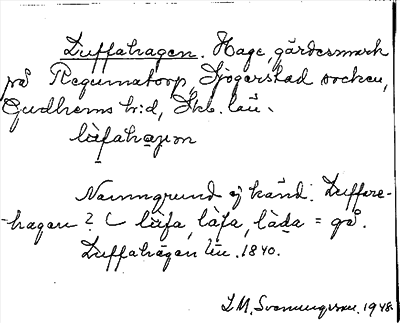 Luffahagen. Hage, gärdesmark
på Regumatorp, Sjogerstad socken,
Gudhems h:d, Skb. län.
lùfahagon
Namngrund ej känd. Luffare-
-hagen? ( lùfa, làfa, làda = gå.
Luffahagen lin. 1840.
I. M. Svenungsson. 1948.